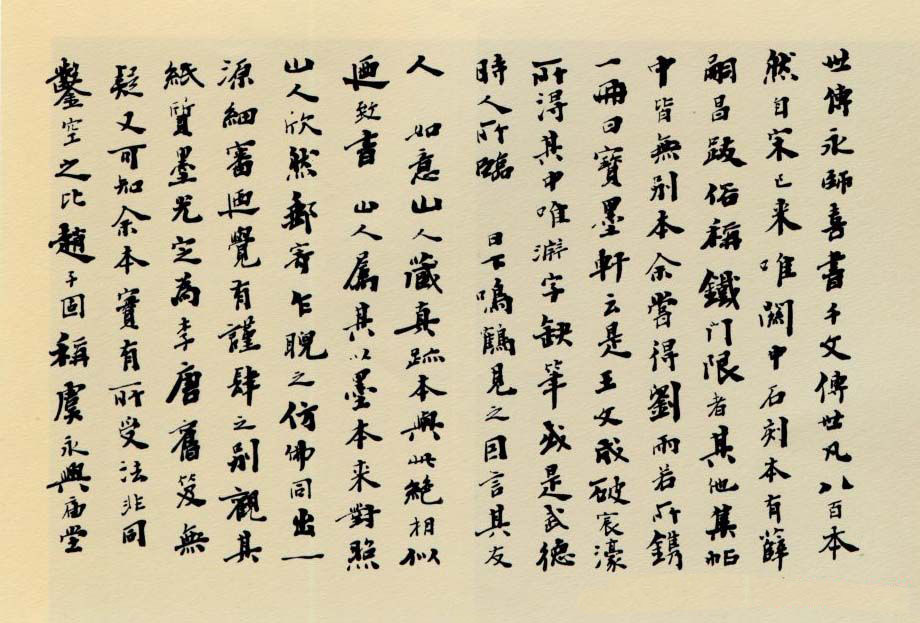 世傳永師喜書千文傳世凡八百本
然自宋已来唯關中石刻本有薛
嗣昌跋俗稱鐵门限者其他集帖
中皆無别本余嘗得劉雨若所鐫
一冊曰寶墨軒云是王文成破宸濠
所得其中唯渊字缺筆或是武德
時人所臨 日下鳴鶴見之因言其友
人 如意山人藏真跡本與此絶相似
迺致書 山人属其以墨本来對照
山人欣然郵寄乍睨之仿佛同出一
源細審迺覺有謹肆之别觀其
紙質墨光定為李唐舊笈無
疑又可知余本實有所受法非同
鑿空之比趙子固稱虞永興庙堂